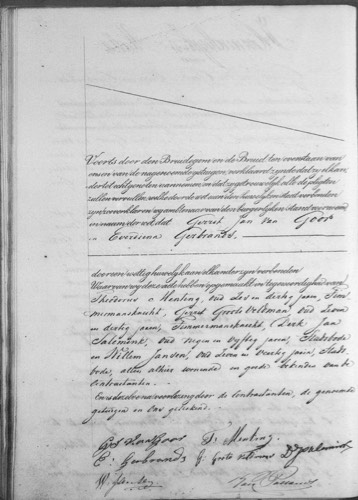 Voorts door den Bruidegom en de Bruid ten overstaan van
ons en van de nagenoemde getuigen, verklaard zijnde dat zij elkan-
der tot echtgenoten aannemen en dat zij getrouwelijk alle de plichten
zullen vervullen, welke door de wet aan den huwelijken staat verbonden
zijn, zoo verklaren wij als Ambtenaar van den burgerlijken stand
en in naam der wet, dat Gerrit Jan van Goor
en Everdina Gerbrands
door een wettig huwelijk aan elkander zijn verbonden
Waarvan wij deze akte hebben opgemaakt in tegenwoordigheid van
Theodorus Menting, oud Zes en dertig jaren, Tim-
mermansknecht, Gerrit Groot Veldman oud Zeven
en dertig jaren, Timmermansknecht, Derk Jan
oud negen en vyftig jaren, Stadsbode
en Willem Jansen, oud Zeven en Veertig jaren, Stads-
bode, allen alhier wonende en goede bekenden van de
Contractanten.
En is deze na voorlezing door de Contractanten, de genoemde
getuigen en Ons geteekend.
T. Menting
E: Gerbrands